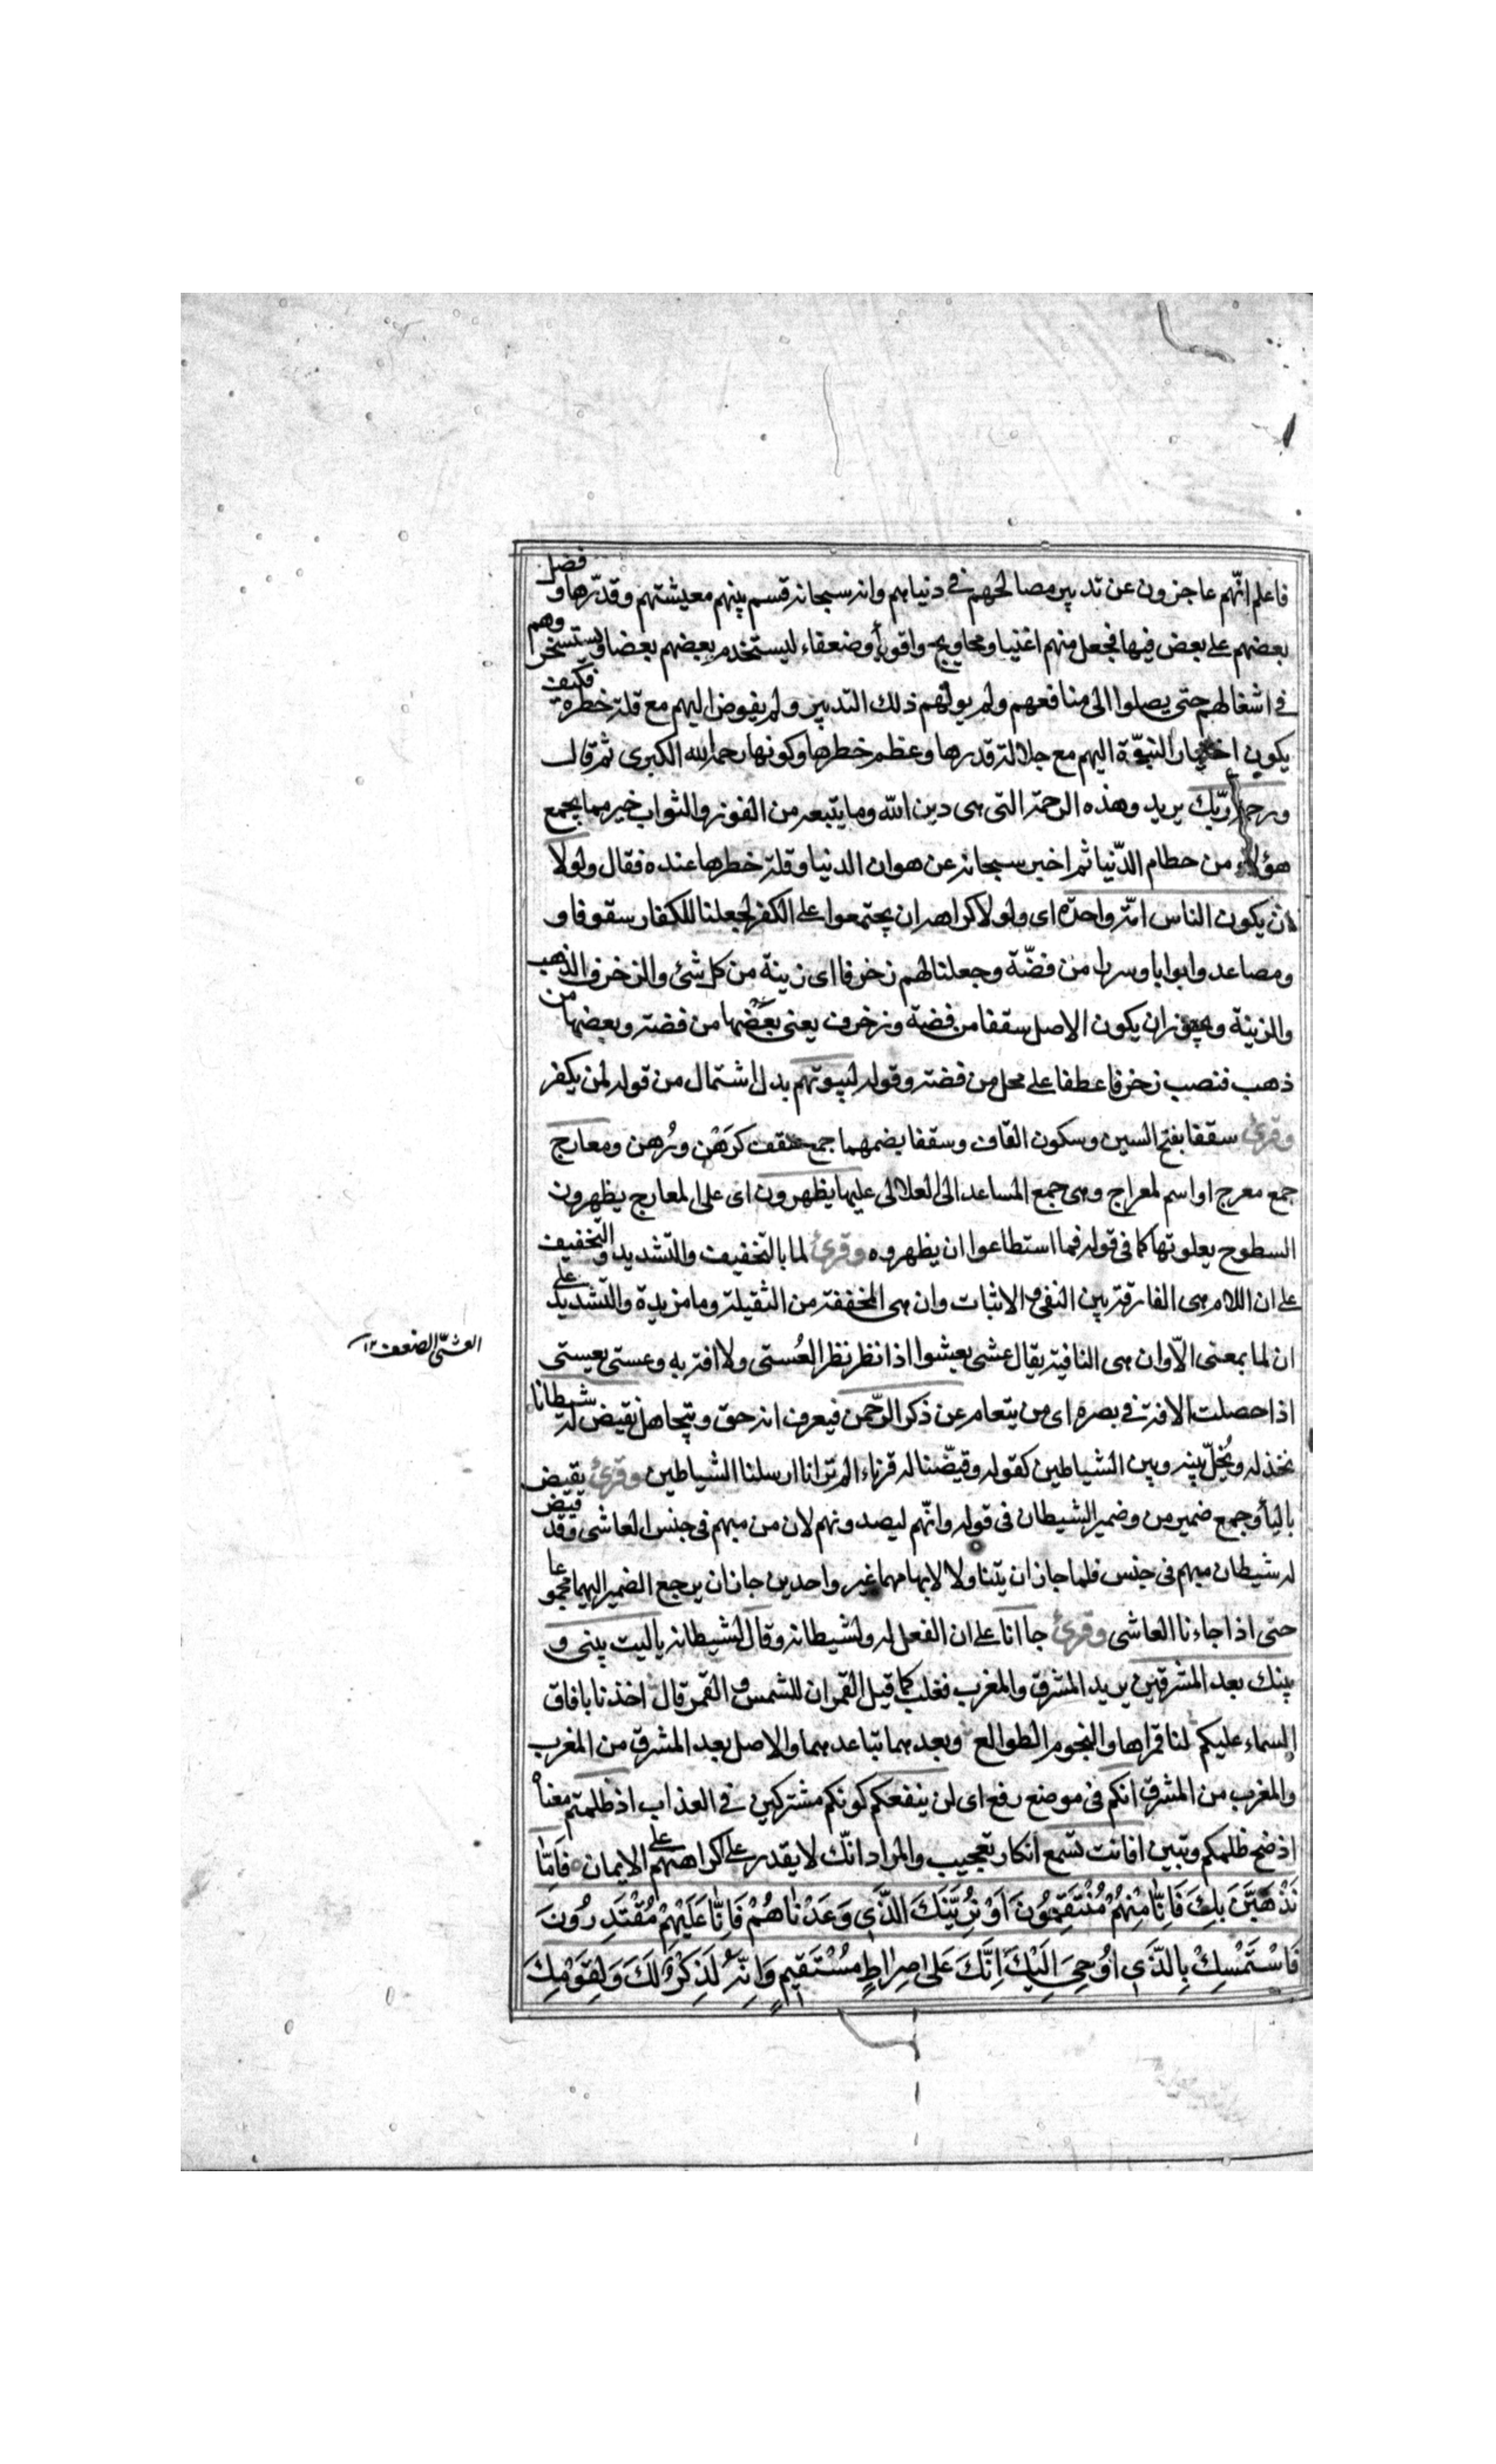 فاعلم انّهم عاجزون عن تدبير مصالحهم في دنياهم وانه سبحانه قسم بينهم معيشتهم وقدّرها و فضل
بعضهم على بعض فيها فجعل منهم اغنيا ومحاويج واقويأ وضعفاء ليستخدم بعضهم بعضا ويستسخروهم
في اشغالهم حتى يصلوا الى منافعهم ولم يولّهم ذلك التدبير ولم يفوض اليهم مع قلة خطره فكيف
يكون اختيار النبوّة اليهم مع جلالة قدرها وعظم خطرها وكونها رحمة الله الكبرى ثم قال
ورحمة ربّك يريد وهذه الرحمة التى هى دين الله وما يتبعه من الفوز والثواب خير مما يجمع
هؤلاء من حطام الدّنيا ثم اخبر سبحانه عن هوان الدنيا وقلة خطرها عنده فقال ولولا
ان يكون الناس امّة واحدة اى ولولا كراهة ان يجتمعوا على الكفر لجعلنا للكفار سقوفا و
ومصاعد وابوابا وسررا من فضّة وجعلنا لهم زخرفا اى زينة من كل شئ والزخرف الذهب
والزينة ويجوز ان يكون الاصل سقفا من فضة وزخرف يعنى بعضها من فضة وبعضها من
ذهب فنصب زخرفا عطفا على محل من فضة وقوله لبيوتهم بدل اشتمال من قوله لمن يكفر
وقرئ سقفا بفتح السين وسكون القاف وسقفا بضمهما جمع سقف كرَهْن ورُهن ومعارج
جمع معرج او اسم لمعراج وهى جمع المساعد الى العلالى عليها يظهرون اى على المعارج يظهرون
السطوح يعلونها كما فى قوله فما استطاعوا ان يظهروه وقرئ لما بالتخفيف والتشديد والتخفيف
على ان اللام هى الفارقة بين النفى والاثبات وان هى المخففة من الثقيلة وما مزيدة والتشديد على
ان لما بمعنى الّا وان هى النافية يقال عشى يعشوا اذا نظر نظر العُستى ولا افة به وعستى يعستى
اذا حصلت الافة في بصره اى من يتعام عن ذكر الرّحمن فيعرف انه حق ويتجاهل نقيض له شيطانا
نخذله ونُخلّ بينه وبين الشياطين كقوله وقيّضنا له قرناء الم تر انا ارسلنا الشياطين وقرئ يقيض
باليأ وجمع ضمير من وضمير الشيطان فى قوله وانّهم ليصدونهم لان من مبهم فى جنس العاشى وقد قيّض
له شيطان مبهم فى جنس فلما جاز ان يتناولا لابهامهما غير واحدين جاز ان يرجع الضمير اليهما مجموعا
حتى اذا جاءنا العاشى وقرئ جاانا على ان الفعل له ولشيطانه وقال لشيطانه ياليت بينى و
بينك بعد المشرقين يريد المشرق والمغرب فغلب كما قيل القمران للشمس والقمر قال اخذنا بافاق
السماء عليكم لنا قمراها والنجوم الطوالع وبعدهما تباعدهما والاصل بعد المشرق من المغرب
والمغرب من المشرق انكم فى موضع رفع اى لن ينفعكم كونكم مشتركين في العذاب اذ ظلمتم معناه
اذ صح ظلمكم وتبين افانت تسمع انكار تعجيب والمراد انّك لا يقدر على اكراههم على الايمان فَاِمّا
نَذْهَبَنَّ بِكَ فَاِنّا مِنْهُمْ مُنْتَقِمُونَ اَوْ نُرِيَنَّكَ الَّذِي وَعَدْناهُمْ فَاِنّا عَلَيْهِمْ مُقْتَدِرُونَ
فَاسْتَمْسِكْ بِالَّذِي اُوحِيَ اِلَيْكَ اِنَّكَ عَلى صِراطٍ مُسْتَقِيمٍ وَاِنَّهُ لَذِكْرٌ لَكَ وَلِقَوْمِكَ
العشى الضعف ١٢